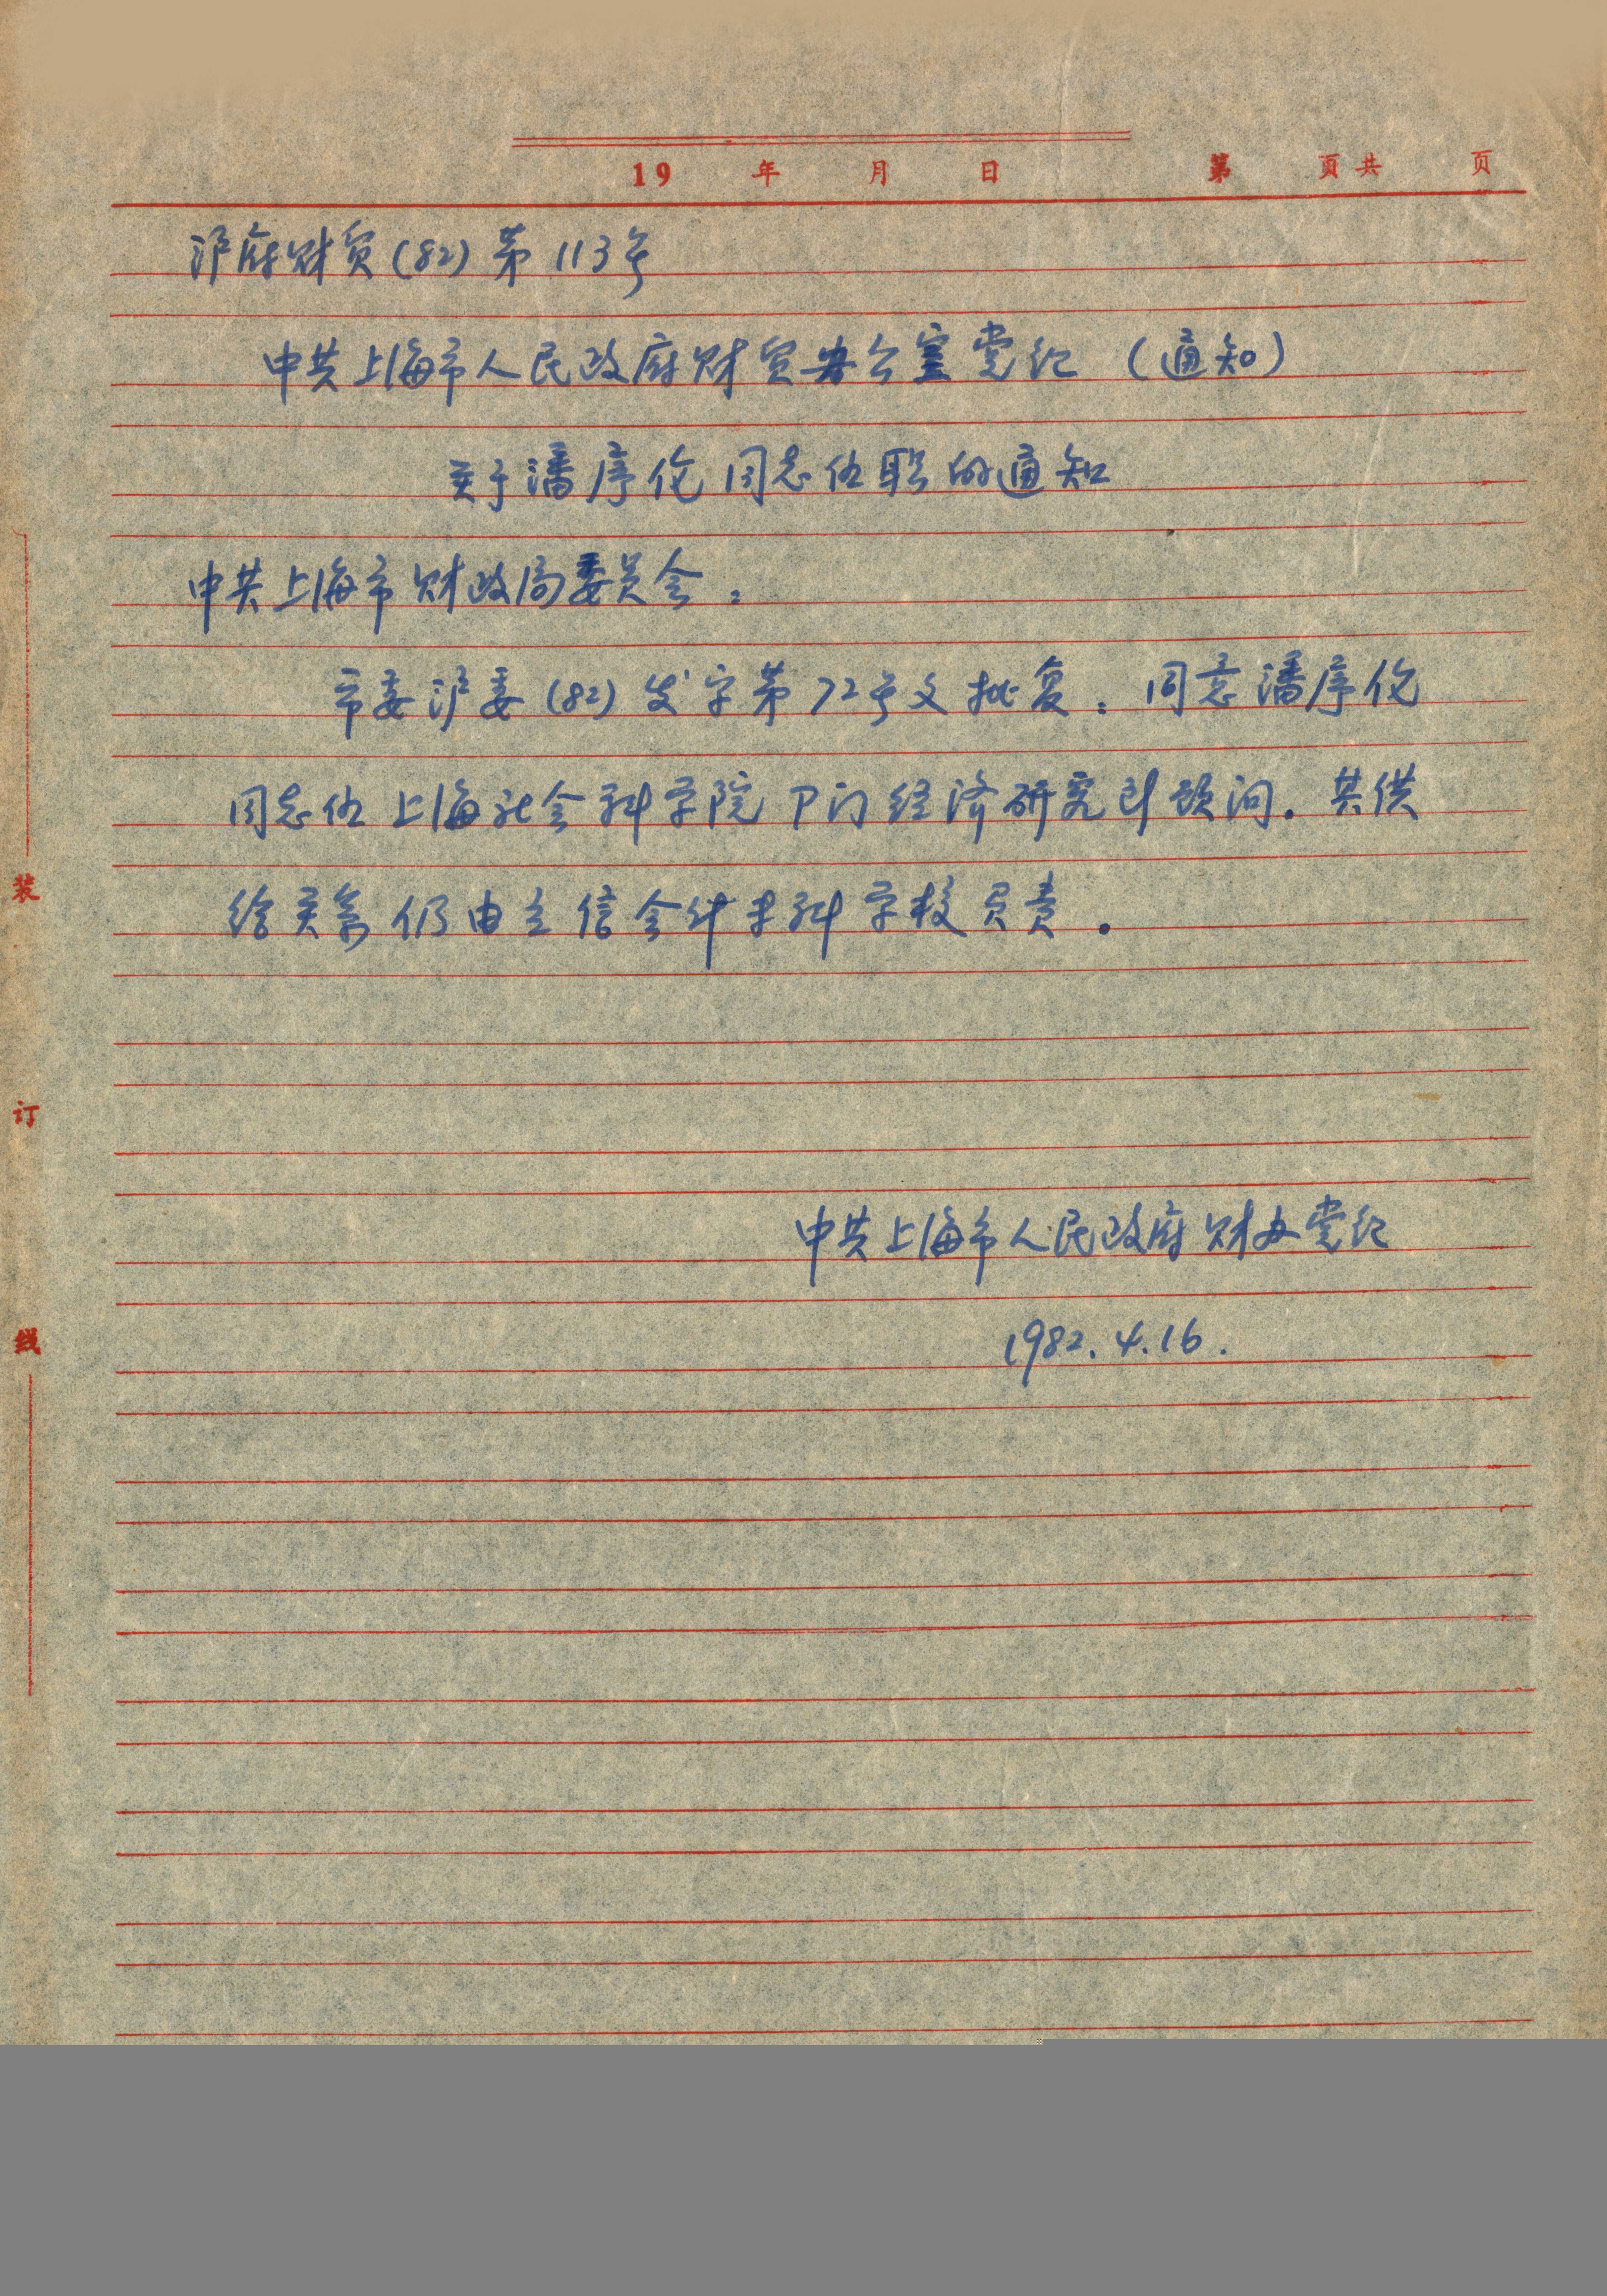 19 年 月 日 第 页共 页
沪府财贸(82)第113号
中共上海市人民政府财贸办公室党组(通知)
关于潘序伦同志任职的通知
中共上海市财政局委员会：
市委沪委(82)发字第72号文批复：同意潘序伦
同志任上海社会科学院部门经济研究所顾问。其供
给关系仍由立信会计专科学校负责。
中共上海市人民政府财办党组
1982.4.16.
装
订
线